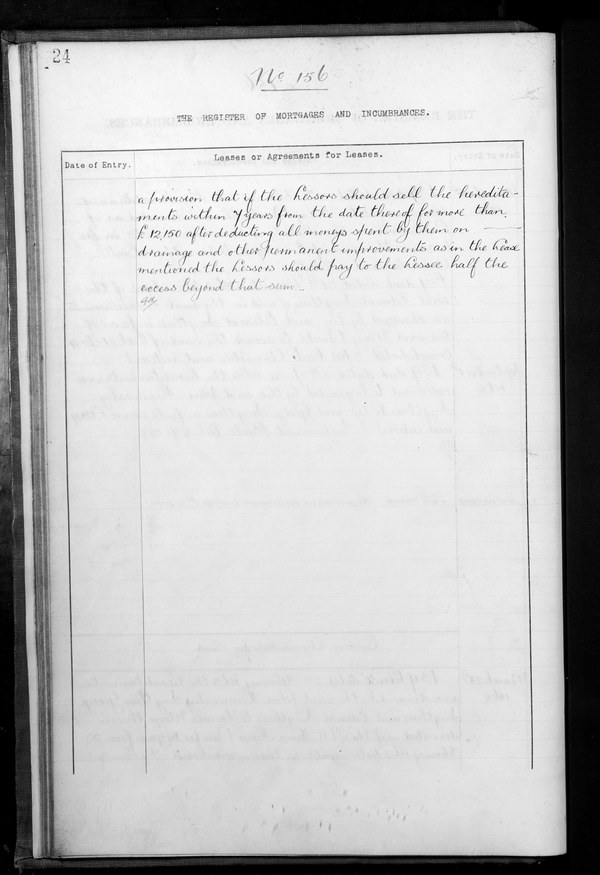 24
No 156
THE REGISTER OF MORTGAGES AND INCUMBRANCES.
Date of Entry.
Leases or Agreements for Leases.
a provision that if the Lessors should sell the heredita-
ments within 7 years from the date thereof for more than
£12,150 after deducting all moneys spent by them on
drainage and other permanent improvements as in the Lease
mentioned the Lessors should pay to the Lessee half the
excess beyond that sum_